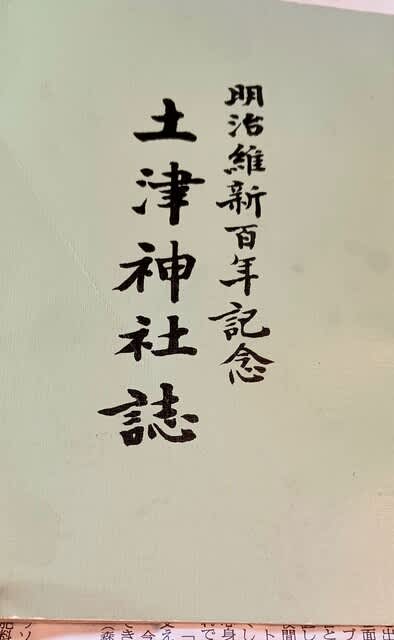 明治維新百年記念
土津神社誌